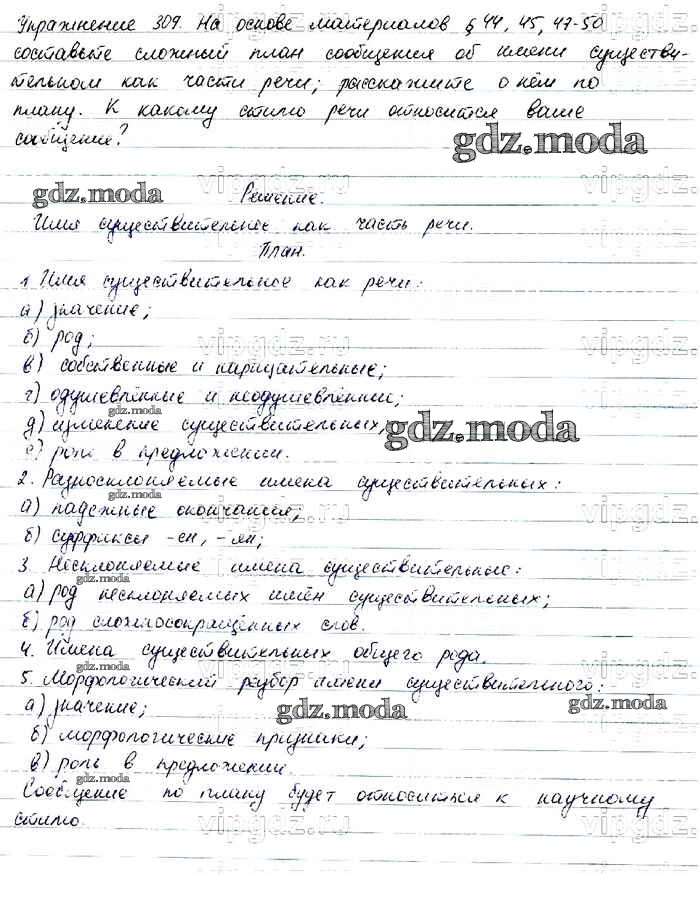 Упражнение 309. На основе материалов § 44, 45, 47-50
составьте сложный план сообщения об имени существи-
тельном как части речи; расскажите о нём по
плану. К какому стилю речи относится ваше
сообщение?
gdz.moda
gdz.moda
vipgdz.ru
Решение.
Имя существительное как часть речи.
План.
1. Имя существительное как речи:
а) значение;
б) род;
в) собственные и нарицательные;
г) одушевлённые и неодушевлённые;
gdz.moda
д) изменение существительных,
gdz.moda
е) роль в предложении.
2. Разносклоняемые имена существительных:
gdz.moda
а) падежные окончания;
vipgdz.ru
б) суффиксы -ен, -ян;
3. Несклоняемые имена существительные:
gdz.moda
а) род несклоняемых имён существительных;
б) род сложносокращённых слов.
4. Имена существительных общего рода.
gdz.moda
5. Морфологический разбор имени существительного:
а) значение;
gdz.moda
gdz.moda
б) морфологические признаки;
в) роль в предложении.
gdz.moda
Сообщение по плану будет относиться к научному
стилю.
vipgdz.ru